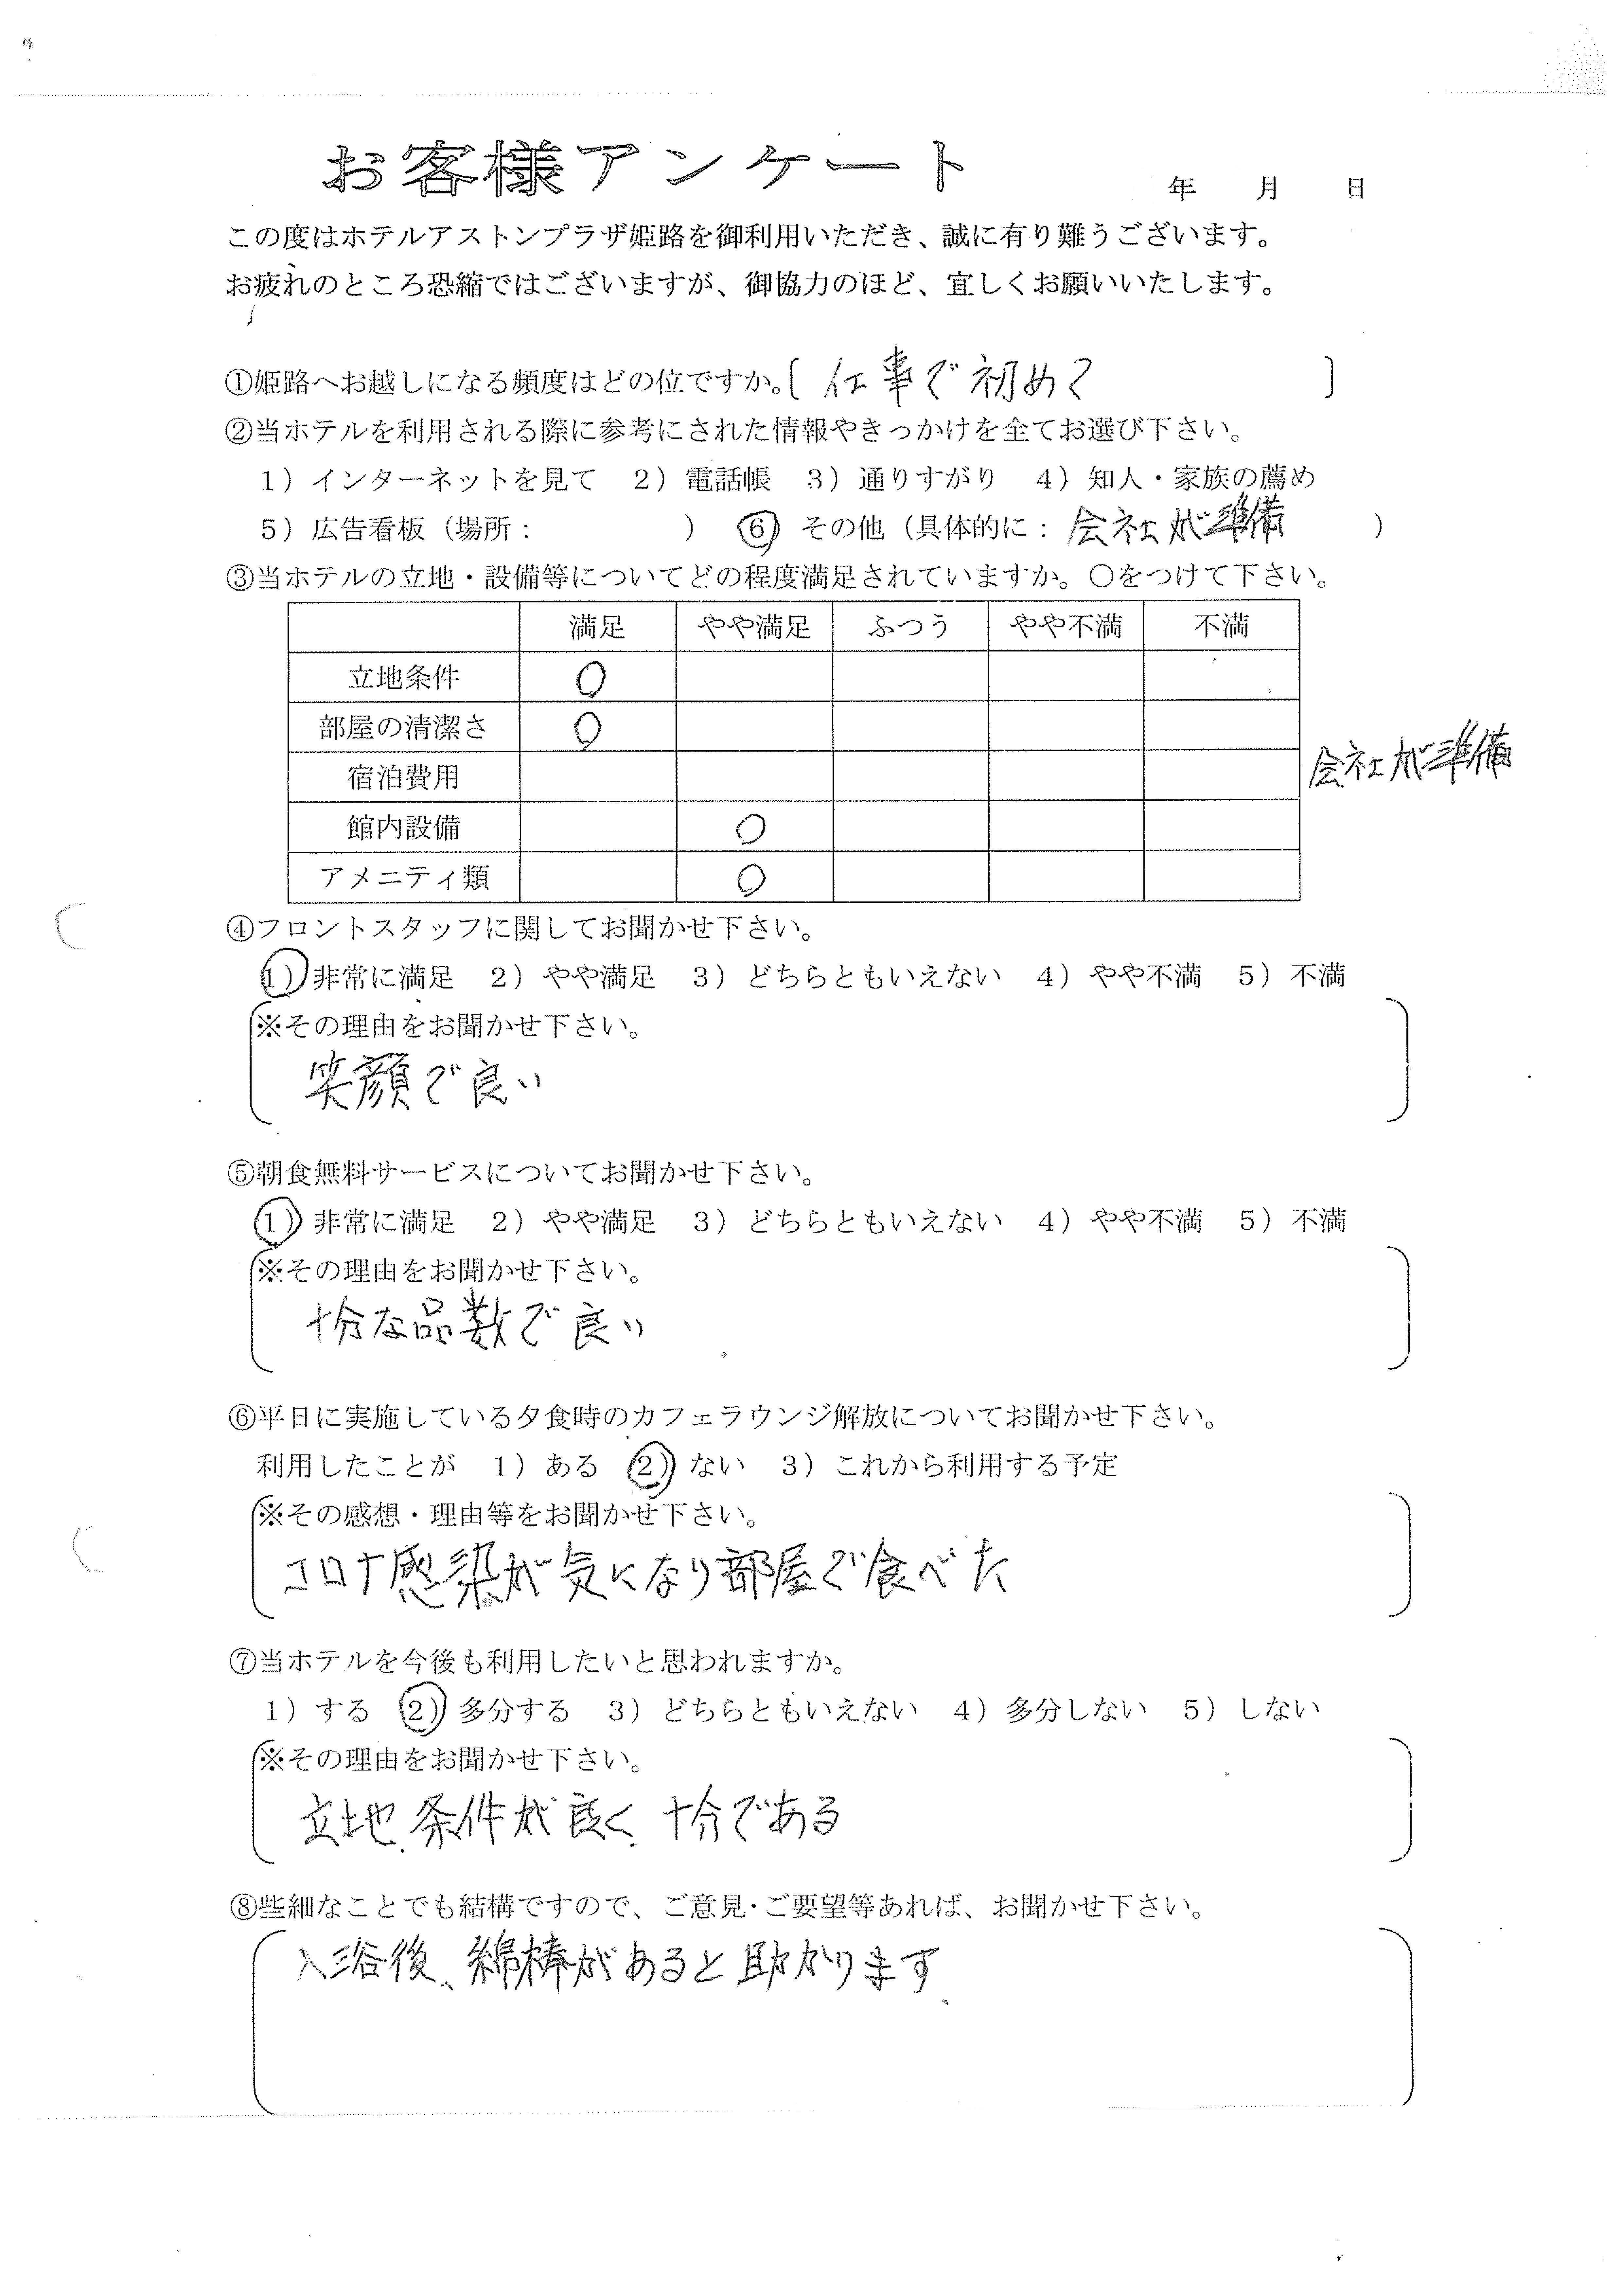 お客様アンケート
年　月　日
この度はホテルアストンプラザ姫路を御利用いただき、誠に有り難うございます。
お疲れのところ恐縮ではございますが、御協力のほど、宜しくお願いいたします。
①姫路へお越しになる頻度はどの位ですか。〔 仕事で初めて 〕
②当ホテルを利用される際に参考にされた情報やきっかけを全てお選び下さい。
1）インターネットを見て 2）電話帳 3）通りすがり 4）知人・家族の薦め
5）広告看板（場所： ） 6 その他（具体的に：会社が準備 ）
③当ホテルの立地・設備等についてどの程度満足されていますか。○をつけて下さい。
満足 やや満足 ふつう やや不満 不満
立地条件 ○
部屋の清潔さ ○
宿泊費用 会社が準備
館内設備 ○
アメニティ類 ○
④フロントスタッフに関してお聞かせ下さい。
1）非常に満足 2）やや満足 3）どちらともいえない 4）やや不満 5）不満
※その理由をお聞かせ下さい。
笑顔で良い
⑤朝食無料サービスについてお聞かせ下さい。
1）非常に満足 2）やや満足 3）どちらともいえない 4）やや不満 5）不満
※その理由をお聞かせ下さい。
十分な品数で良い
⑥平日に実施している夕食時のカフェラウンジ解放についてお聞かせ下さい。
利用したことが 1）ある 2）ない 3）これから利用する予定
※その感想・理由等をお聞かせ下さい。
コロナ感染が気になり部屋で食べた
⑦当ホテルを今後も利用したいと思われますか。
1）する 2）多分する 3）どちらともいえない 4）多分しない 5）しない
※その理由をお聞かせ下さい。
立地条件が良く、十分である
⑧些細なことでも結構ですので、ご意見・ご要望等あれば、お聞かせ下さい。
入浴後、綿棒があると助かります